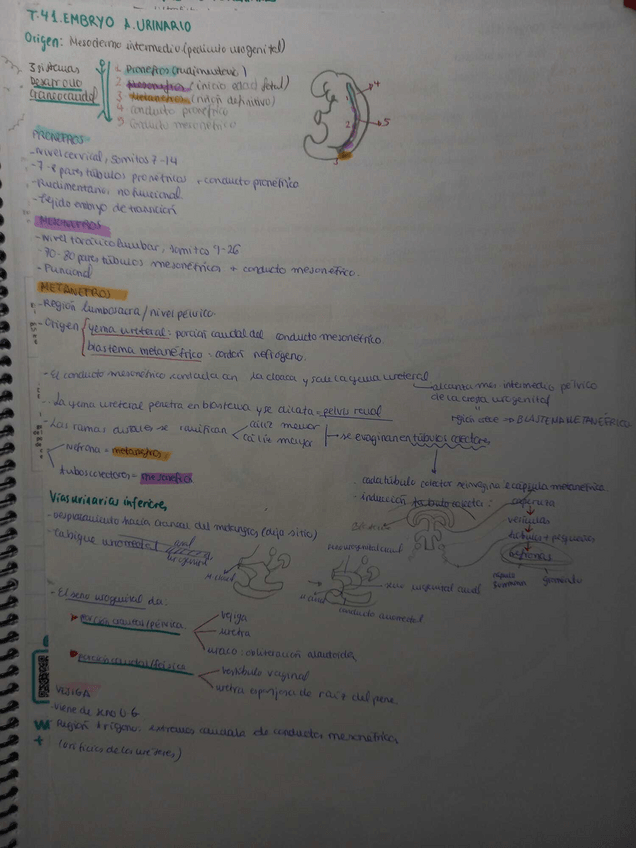 T.41. EMBRYO A. URINARIO
Origen: Mesodermo intermedio (pedículo urogenital)
3 sistemas
desarrollo
craneocaudal
1 Pronefros (rudimentario)
2 Mesonefros (inicio edad fetal)
3 Metanefros (riñón definitivo)
4 conducto pronéfrico
5 conducto mesonéfrico
1
2
3
4
5
PRONEFROS
- Nivel cervical, somitos 7-14
pares túbulos pronéfricos + conducto pronéfrico
- Rudimentario, no funcional
- Tejido embryo de transición
MESONEFROS
- Nivel toracicolumbar, somitos 9-26
- 70-80 pares túbulos mesonéfricos + conducto mesonéfrico.
- Funcional
METANEFROS
- Región lumbosacra / nivel pélvico
- Origen
yema ureteral: porción caudal del conducto mesonéfrico.
blastema metanéfrico: cordón nefrógeno.
- El conducto mesonéfrico contacta con la cloaca y sale la yema ureteral
alcanza mes. intermedio pélvico
de la cresta urogenital
BLASTEMA METANÉFRICO
- La yema ureteral penetra en blastema y se dilata = pelvis renal
- Las ramas se ramifican
cáliz menor
cáliz mayor
se evaginan en túbulos colectores
nefrona = metanefros
tubos colectores = mesonefros
cada túbulo colector
- inducción túbulo colector:
caperuza
vesículas
túbulos + pequeños
nefronas
glomérulo
Vías urinarias inferiores
- Desplazamiento hacia craneal del metanefros (deja sitio)
- Tabique urorrectal
seno urogenital caudal
conducto anorrectal
- El seno urogenital da:
porción craneal/pélvica
vejiga
uretra
uraco: obliteración alantoides
porción caudal/fálica
vestíbulo vaginal
uretra esponjosa de raíz del pene.
VEJIGA
- viene de seno UG
Región trígono: extremos caudales de conductos mesonéfricos
+ (orificios de los uréteres)